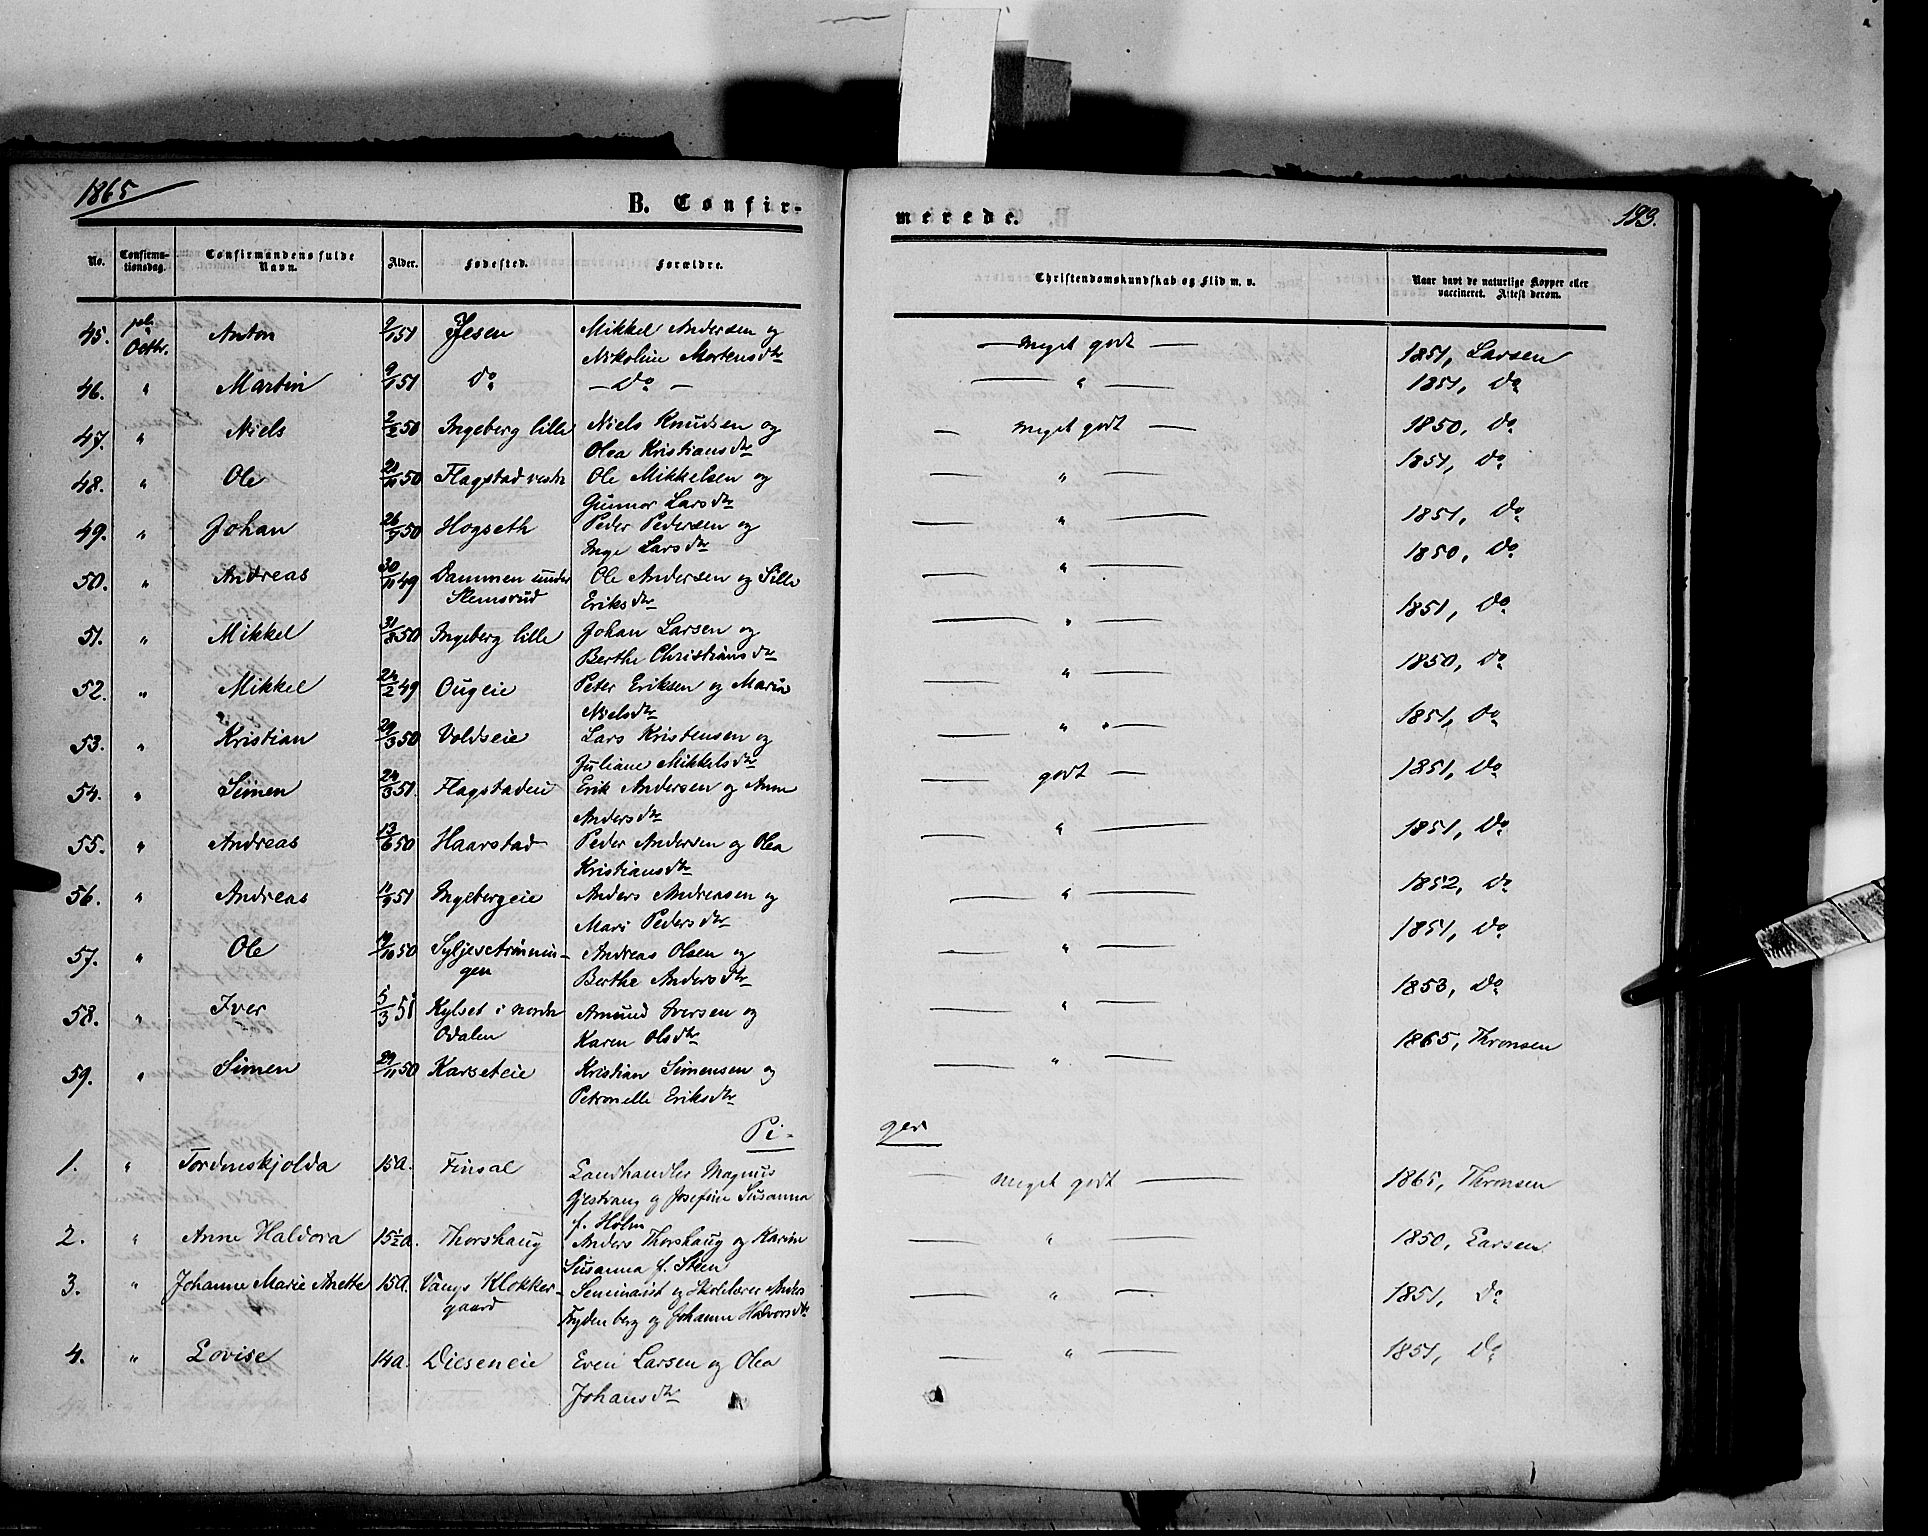 1865
B. Confir-
merede.
193.
No. Confirmationsdag. Confirmandens fulde Navn. Alder. Fødested. Forældre. Christendomskundskab og Flid m. v. Naar havt de naturlige Kopper eller vaccineret. Attest derom.
45. Octbr. Anton 9/1 51 Jesen Mikkel Andersen og — meget godt — 1851, Larsen
Nikoline Mortensdtr
46. " Martin 9/1 51 Do — Do — — " — 1851, Do
47. " Niels 2/2 50 Ingeberg lille Niels Knudsen og — meget godt — 1850, Do
Olea Kristiansdtr
48. " Ole 50 Flagstad vestre Ole Mikkelsen og — " — 1851, Do
Gunnor Larsdtr
49. " Johan 50 Hogseth Peder Pedersen og — " — 1851, Do
Inge Larsdtr
50. " Andreas 30/11 49 Dammen under Ole Andersen og Sille — " — 1850, Do
Stemsrud Eriksdtr
51. " Mikkel 31/8 50 Ingeberg lille Johan Larsen og — " — 1851, Do
Berthe Christiansdtr
52. " Mikkel 24/2 49 Ougeie Peter Eriksen og Maria — " — 1850, Do
Nielsdtr
53. " Kristian 29/3 50 Voldseie Lars Kristensen og — " — 1851, Do
Juliane Mikkelsdtr
54. " Simen 24/3 51. Flagstadeie Erik Andersen og Anne — godt — 1851, Do
Andersdtr
55. " Andreas 13/6 50 Haarstad Peder Andersen og Olea — " — 1851, Do
Kristiansdtr
56. " Andreas 11/9 51 Ingebergeie Anders Andreasen og — " — 1852, Do
Mari Pedersdtr
57. " Ole 19/10 50 Syljesetrønnin- Andreas Olsen og — " — 1851, Do
gen Berthe Andersdtr
58. " Iver 5/3 51 Kylset i nordre Amund Iversen og — " — 1853, Do
Odalen Karen Olsdtr
59. " Simen 29/11 50 Karseteie Kristian Simensen og — " — 1865, Thronsen
Petronelle Eriksdtr
Pi-
ger
1. " Tordenskjolda 15 A. Finsal Landhandler Magnus — meget godt — 1865, Thronsen
Gjestvang og Josefine Susanna
f. Holm
2. " Anne Haldora 15½ a. Thorshaug Anders Thorshaug og Karin — " — 1850, Larsen
Susanna f. Steen
3. " Johanne Marie Anette 15 A. Vangs Klokker- Seminarist og Skolelærer Anders — " — 1851, Do
gaard Frydenberg og Johanne Halvorsdtr
4. " Lovise 14 a. Dieseneie Even Larsen og Olea — " — 1851, Do
Johansdtr